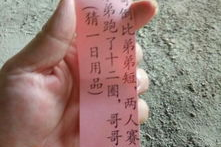 倒比弟弟短，两人赛
弟跑了十二圈，哥哥
（猜一日用品）